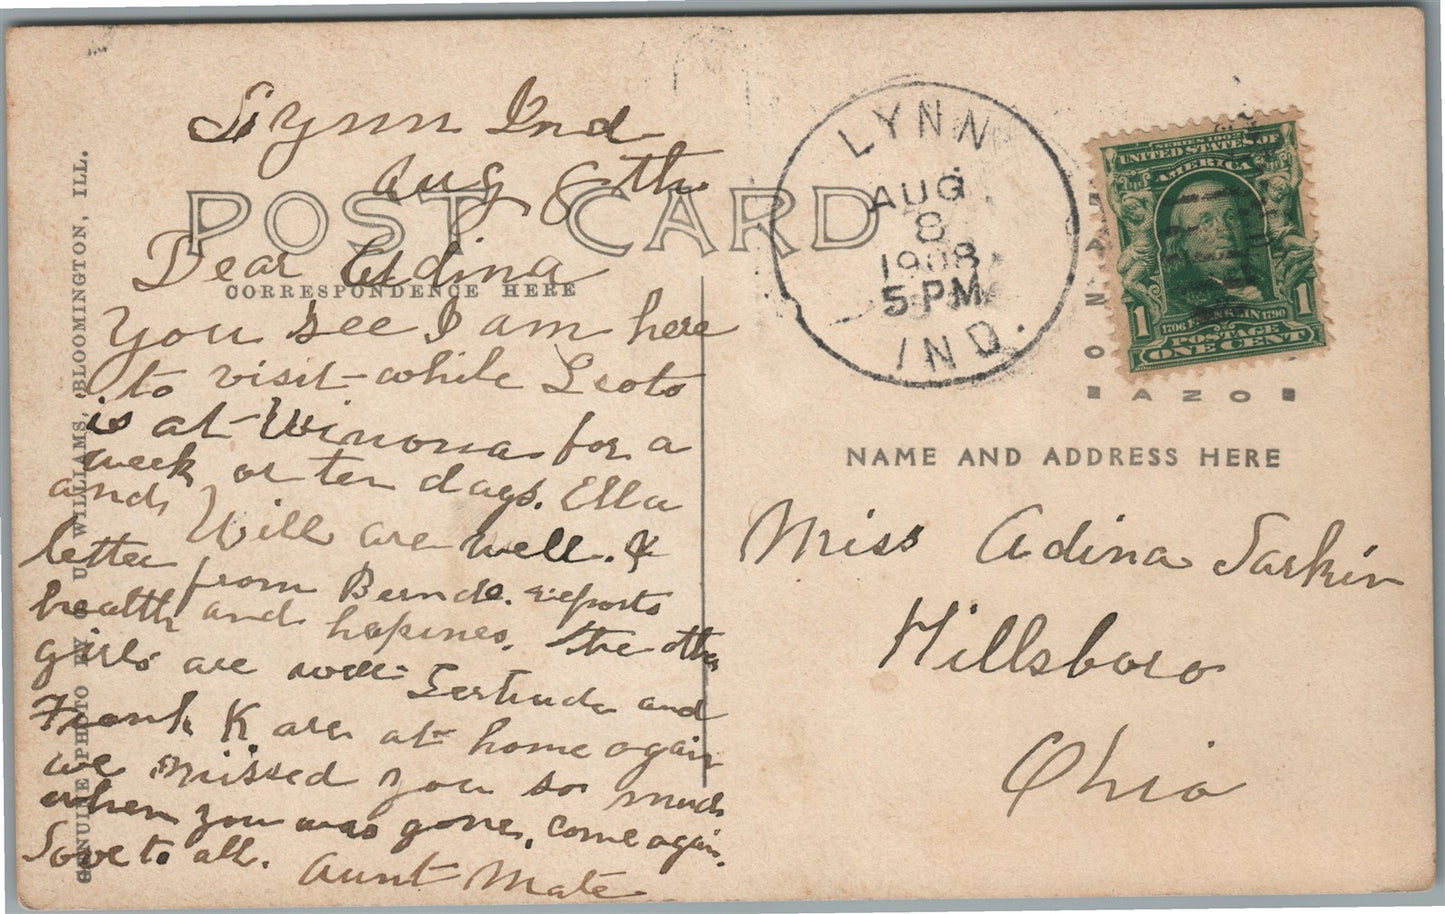 Lynn Ind
Aug 8th
POST CARD
CORRESPONDENCE HERE
Dear Adina
You see I am here
to visit while Leoto
is at Winona for a
week or ten days. Ella
and Will are well. &
letter from Bernde. reports
health and hapines. The other
girls are well Gertrude and
Frank K are at home again
we missed you so much
when you was gone, come again.
Love to all.
Aunt Mate
GENUINE PHOTO BY C. U. WILLIAMS, BLOOMINGTON, ILL.
LYNN
AUG
8
1908
5 PM
IND.
SERIES 1902
UNITED STATES OF
AMERICA
1706 FRANKLIN 1790
POSTAGE
1 ONE CENT 1
NAME AND ADDRESS HERE
Miss Adina Larkin
Hillsboro
Ohio